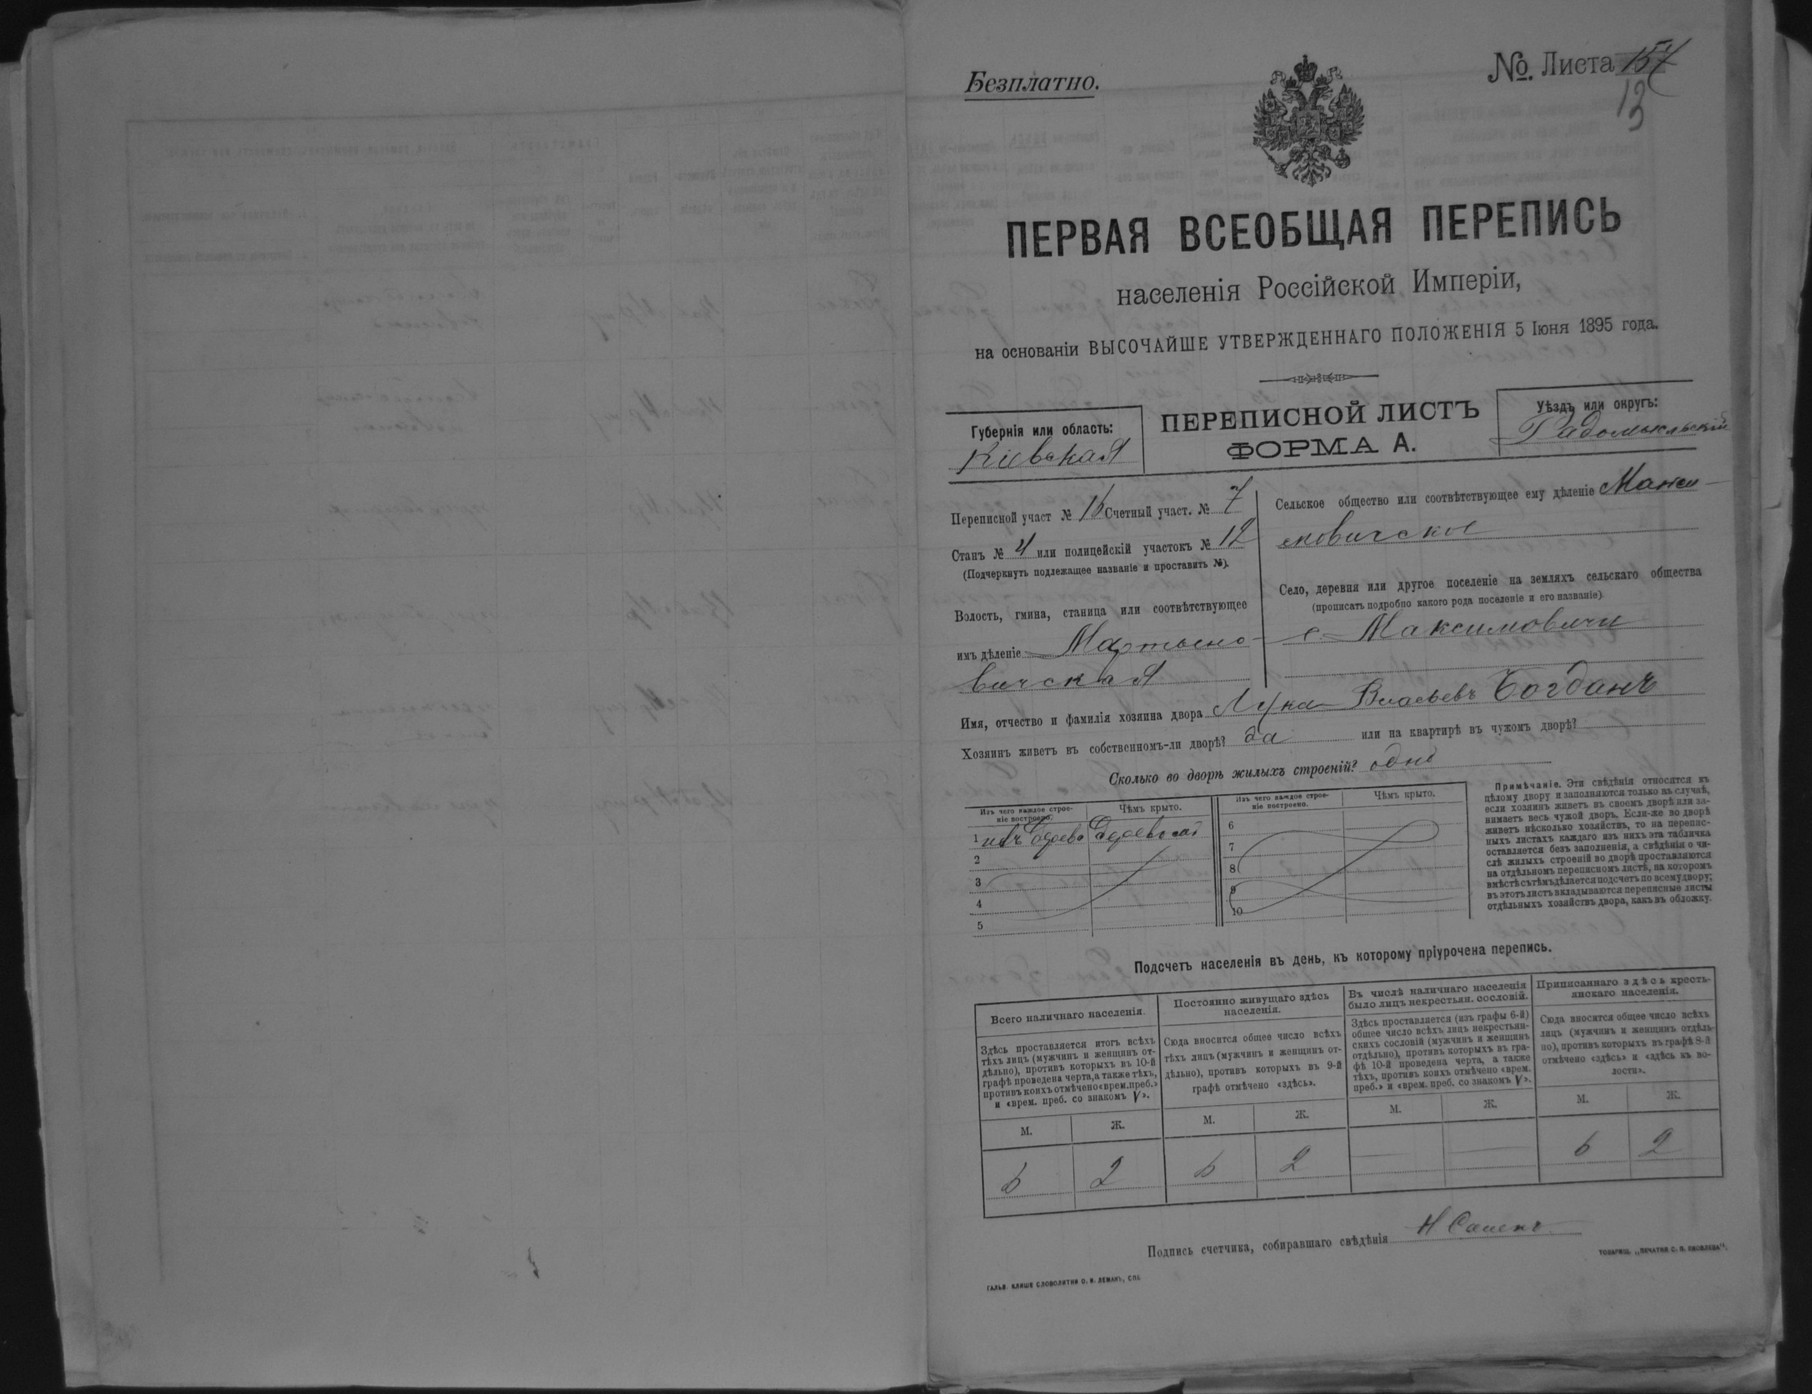 Безплатно.
№ Листа
13
ПЕРВАЯ ВСЕОБЩАЯ ПЕРЕПИСЬ
населенія Россійской Имперіи,
на основаніи ВЫСОЧАЙШЕ УТВЕРЖДЕННАГО ПОЛОЖЕНІЯ 5 Іюня 1895 года.
ПЕРЕПИСНОЙ ЛИСТЪ
ФОРМА А.
Губернія или область:
Кіевская
Уѣздъ или округъ:
Радомысльскій
Переписной участ № 16 Счетный участ. № 7
Станъ № 4 или полицейскій участокъ № 12
(Подчеркнуть подлежащее названіе и проставить №).
Волость, гмина, станица или соотвѣтствующее
имъ дѣленіе Мартыно-
вичская
Сельское общество или соотвѣтствующее ему дѣленіе Макси-
мовичское
Село, деревня или другое поселеніе на земляхъ сельскаго общества
(прописать подробно какого рода поселеніе и его названіе)
с. Максимовичи
Имя, отчество и фамилія хозяина двора Лука Власьевъ Богданъ
Хозяинъ живетъ въ собственномъ-ли дворѣ? да или на квартирѣ въ чужомъ дворѣ?
Сколько во дворѣ жилыхъ строеній? одно
Изъ чего каждое строе-
ніе построено.
Чѣмъ крыто.
1 изъ дерева Деревомъ
2
3
4
5
Изъ чего каждое строе-
ніе построено.
Чѣмъ крыто.
6
7
8
9
10
Примѣчаніе. Эти свѣдѣнія относятся къ
цѣлому двору и заполняются только въ случаѣ,
если хозяинъ живетъ въ своемъ дворѣ или за-
нимаетъ весь чужой дворъ. Если-же во дворѣ
живетъ нѣсколько хозяйствъ, то на перепис-
ныхъ листахъ каждаго изъ нихъ эта табличка
оставляется безъ заполненія, а свѣдѣнія о чи-
слѣ жилыхъ строеній во дворѣ проставляются
на отдѣльномъ переписномъ листѣ, на которомъ
вмѣстѣ съ тѣмъ дѣлается подсчетъ по всему двору;
въ этотъ листъ вкладываются переписные листы
отдѣльныхъ хозяйствъ двора, какъ въ обложку.
Подсчетъ населенія въ день, къ которому пріурочена перепись.
Всего наличнаго населенія.
Здѣсь проставляется итогъ всѣхъ
тѣхъ лицъ (мужчинъ и женщинъ от-
дѣльно), противъ которыхъ въ 10-й
графѣ проведена черта, а также тѣхъ,
противъ коихъ отмѣчено «врем. преб.»
и «врем. преб. со знакомъ V».
М. Ж.
6 2
Постоянно живущаго здѣсь
населенія.
Сюда вносится общее число всѣхъ
тѣхъ лицъ (мужчинъ и женщинъ от-
дѣльно), противъ которыхъ въ 9-й
графѣ отмѣчено «здѣсь».
М. Ж.
6 2
Въ числѣ наличнаго населенія
было лицъ некрестьян. сословій.
Здѣсь проставляется (изъ графы 6-й)
общее число всѣхъ лицъ некрестьян-
скихъ сословій (мужчинъ и женщинъ
отдѣльно), противъ которыхъ въ гра-
фѣ 10-й проведена черта, а также
тѣхъ, противъ коихъ отмѣчено «врем.
преб.» и «врем. преб. со знакомъ V».
М. Ж.
Приписаннаго здѣсь кресть-
янскаго населенія.
Сюда вносится общее число всѣхъ
лицъ (мужчинъ и женщинъ отдѣль-
но), противъ которыхъ въ графѣ 8-й
отмѣчено «здѣсь» и «здѣсь въ во-
лости».
М. Ж.
6 2
Подпись счетчика, собиравшаго свѣдѣнія Н
ГАЛЬВ. КЛИШЕ СЛОВОЛИТНИ О. И. ЛЕМАНЪ, СПБ.
ТОВАРИЩ. „ПЕЧАТНЯ С. П. ЯКОВЛЕВА".